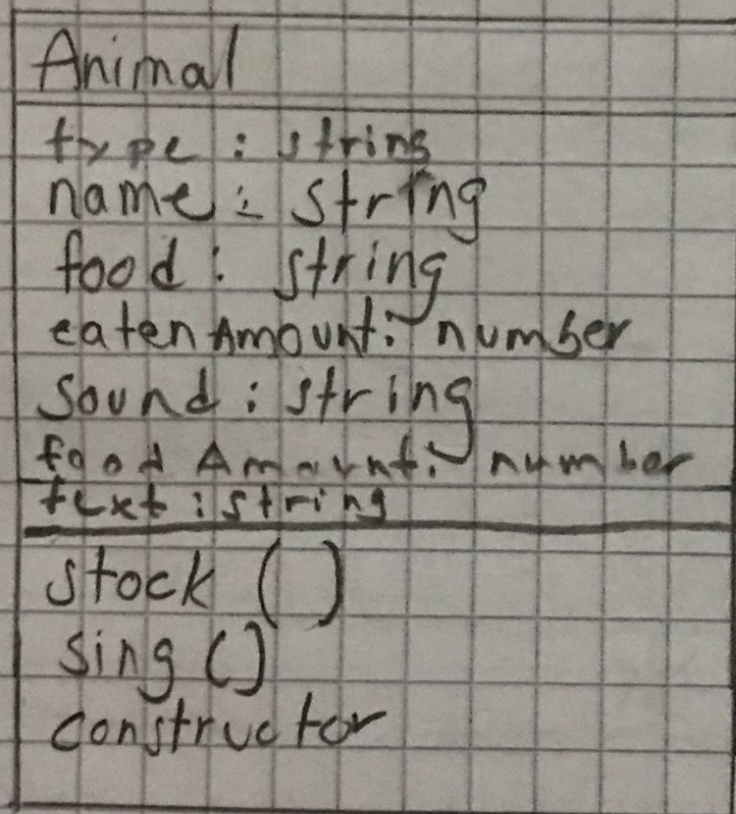 Animal
type : string
name : string
food : string
eatenAmount : number
sound : string
foodAmount : number
text : string
stock ()
sing ()
constructor